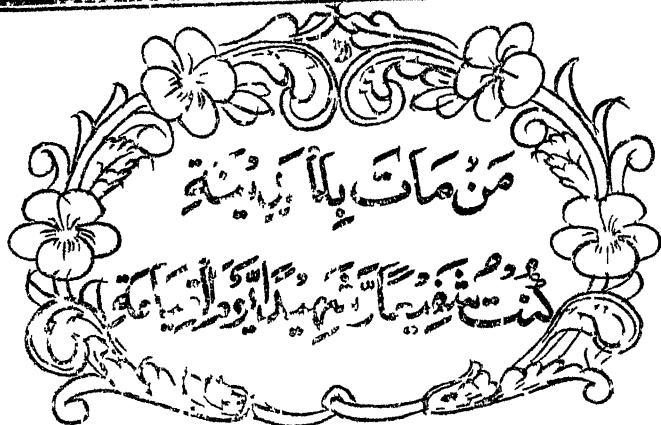 مَنْ مَاتَ بِالْمَدِيْنَةِ
كُنْتُ شَفِيْعًا وَّشَهِيْدًا يَّوْمَ الْقِيَامَةِ